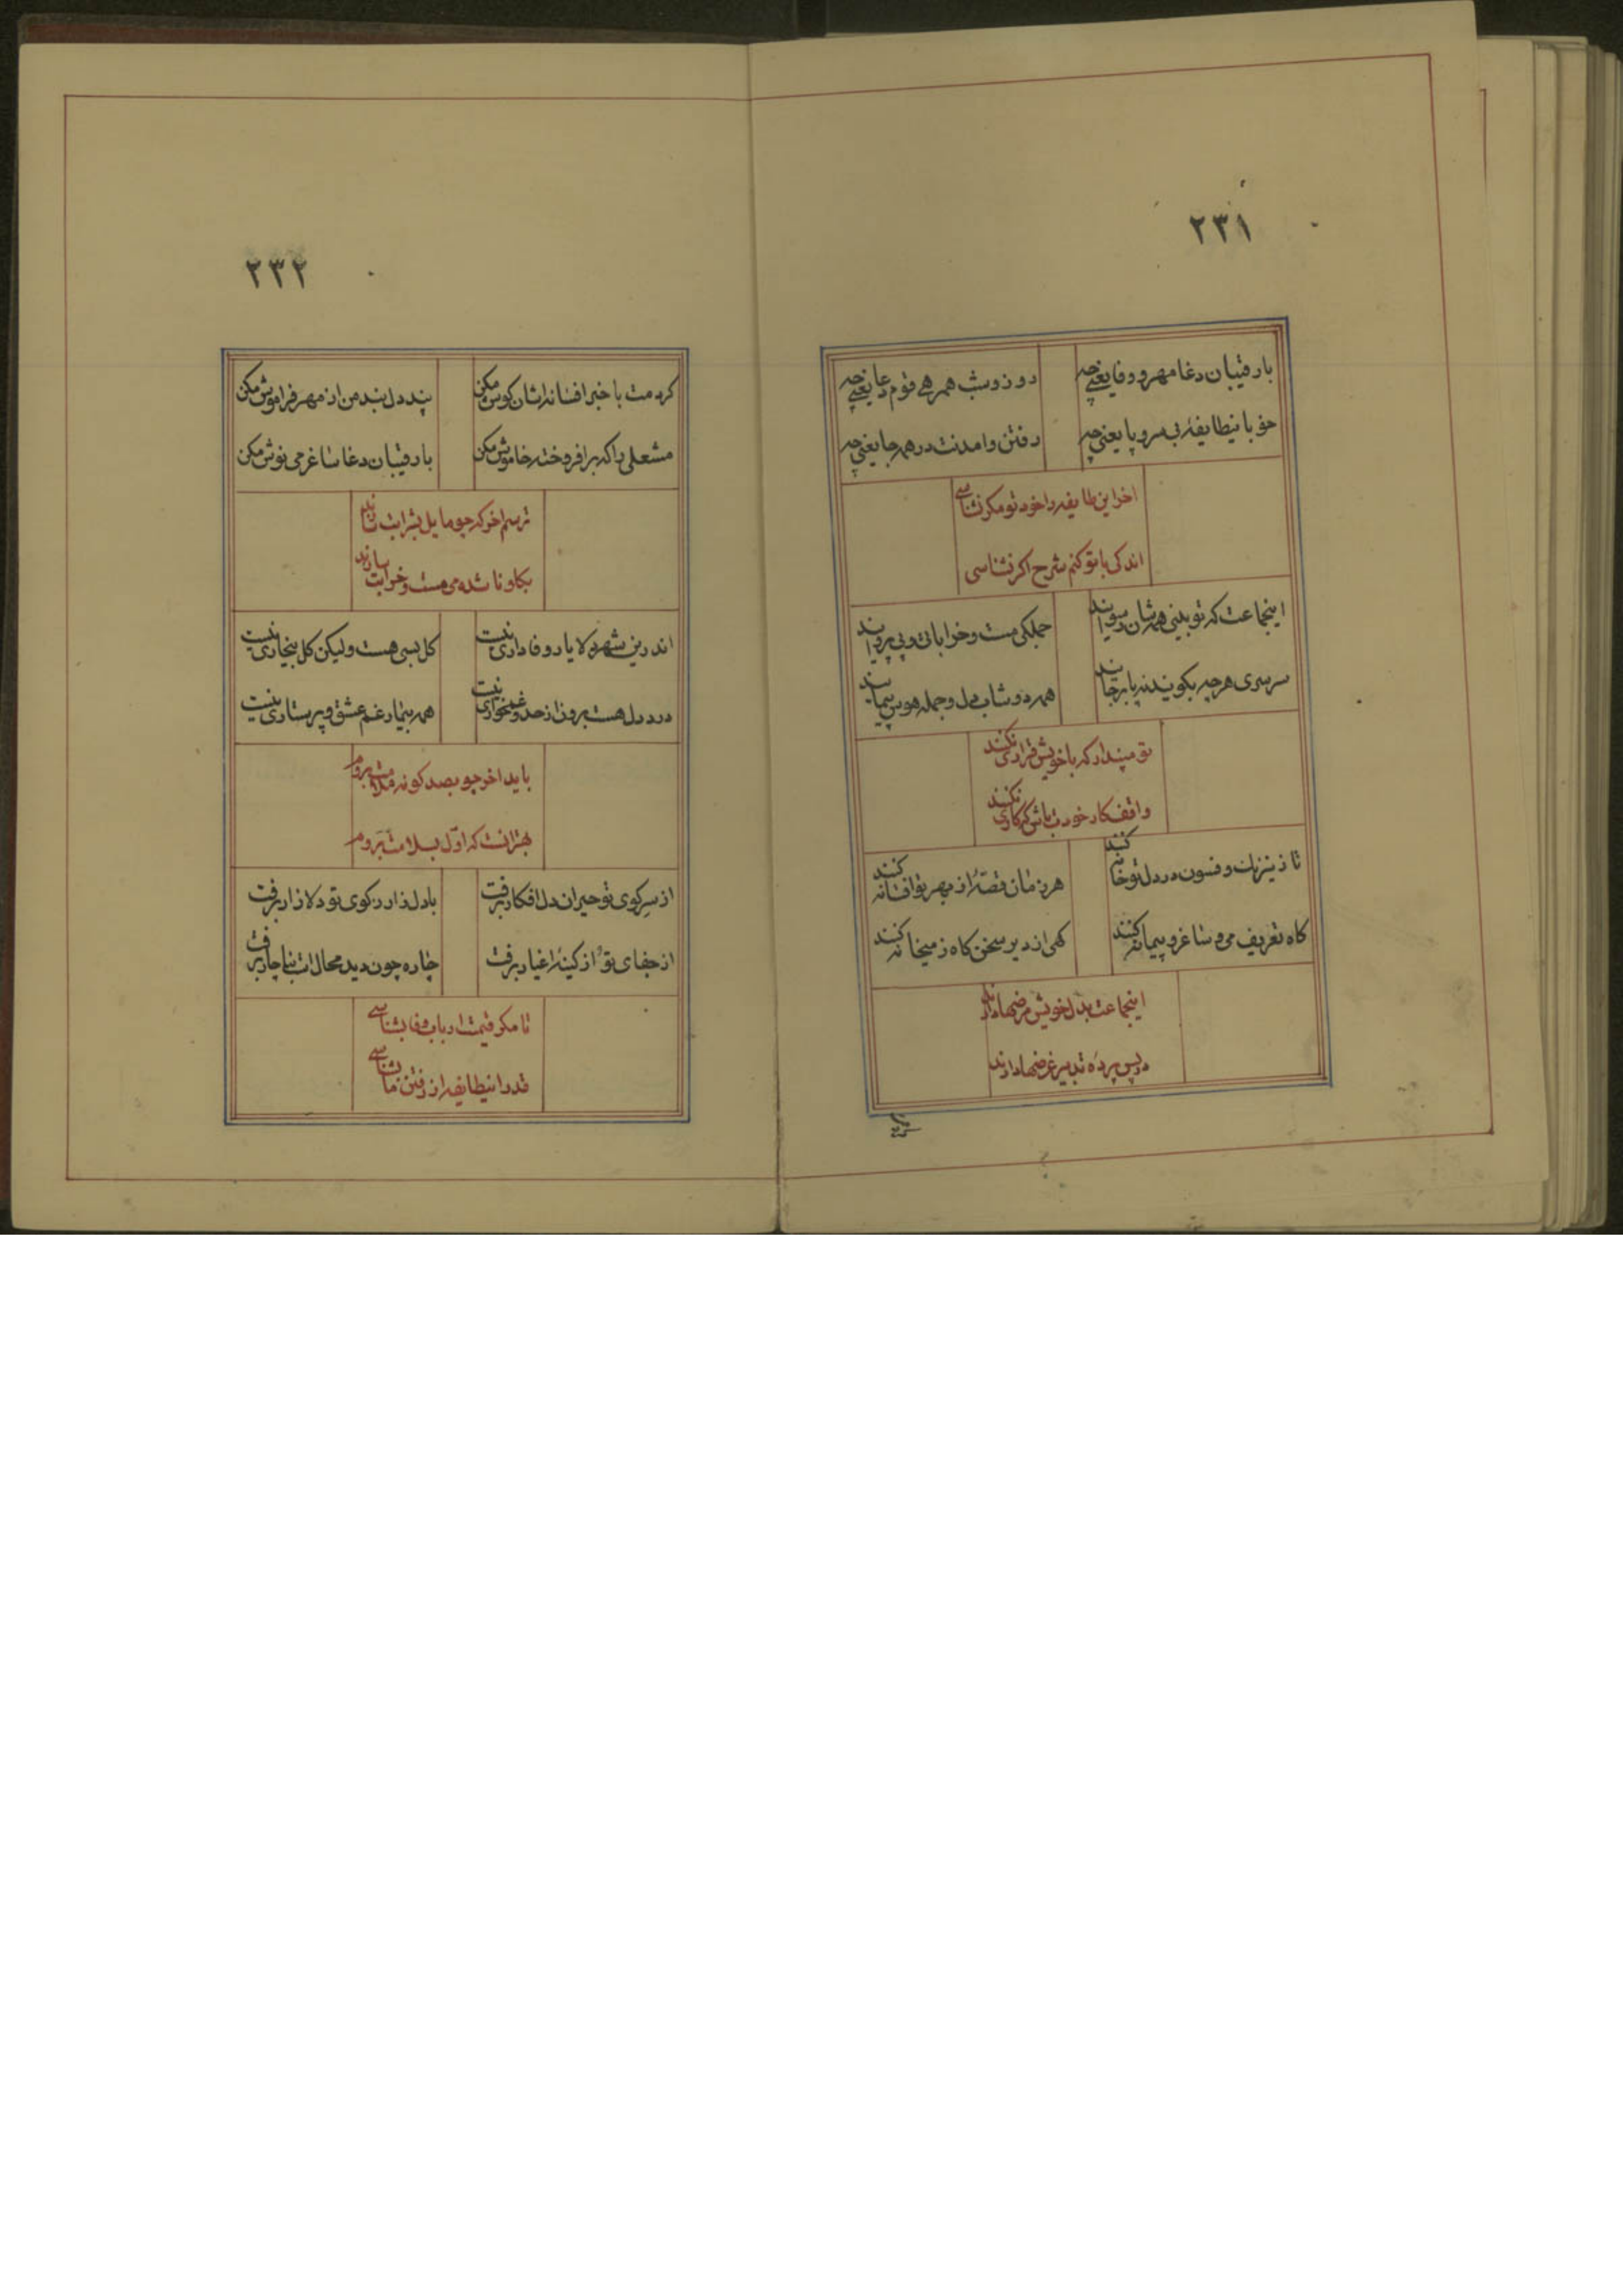 ٢٣١
بارقیبان دغا مهر و وفا یعنی چه
روز و شب همرهی قوم دغا یعنی چه
خو باینطایفهٔ بی سر و پا یعنی چه
رفتن و امدنت در همه جا یعنی چه
اخر این طایفه را خود تو مکر نشناسی
اندکی با تو کنم شرح اکر نشناسی
اینجماعت که تو بینی همه شان رسوایند
جملکی مست و خراباتی و بی پروایند
سرسری هرچه بکویند نه پا برجایند
همه دوشاب دل و جمله هوس پیمایند
تو مپندار که با خویش قراری نکنند
واقف کار خودت باش که کاری نکنند
تا ز نیرنک و فسون در دل تو خانه کنند
هر زمان قصهٔ از مهر تو افسانه کنند
کاه تعریف می و ساغر و پیمانه کنند
کهی از دیر سخن کاه ز میخانه کنند
اینجماعت بدل خویش مرضها دارند
در پس پردهٔ تدبیر غرضها دارند
٢٣٢
کردمت با خبر افسانه‌شان کوش مکن
پند دل بند من از مهر فراموش مکن
مشعلی را که برافروخته خاموش مکن
بارقیبان دغا ساغر می نوش مکن
ترسم اخر که چو مایل بشرابت سازند
بکاونا شده می مست و خرابت سازند
اندرین شهر دلا یار وفاداری نیست
کل بسی هست ولیکن کل بیخاری نیست
درد دل هست برون از حد و غمخواری نیست
همه بیمار غم عشق و پرستاری نیست
باید اخر چو بصد کونه ملامت بروم
بهتر انست که اول بسلامت بروم
از سر کوی تو حیران دل افکار برفت
بادل زار ز کوی تو دلازار برفت
از جفای تو و از کینهٔ اغیار برفت
چاره چون دید محال است بناچار برفت
تا مکر قیمت ارباب وفا بشناسی
قدر اینطایفه از رفتن ما بشناسی